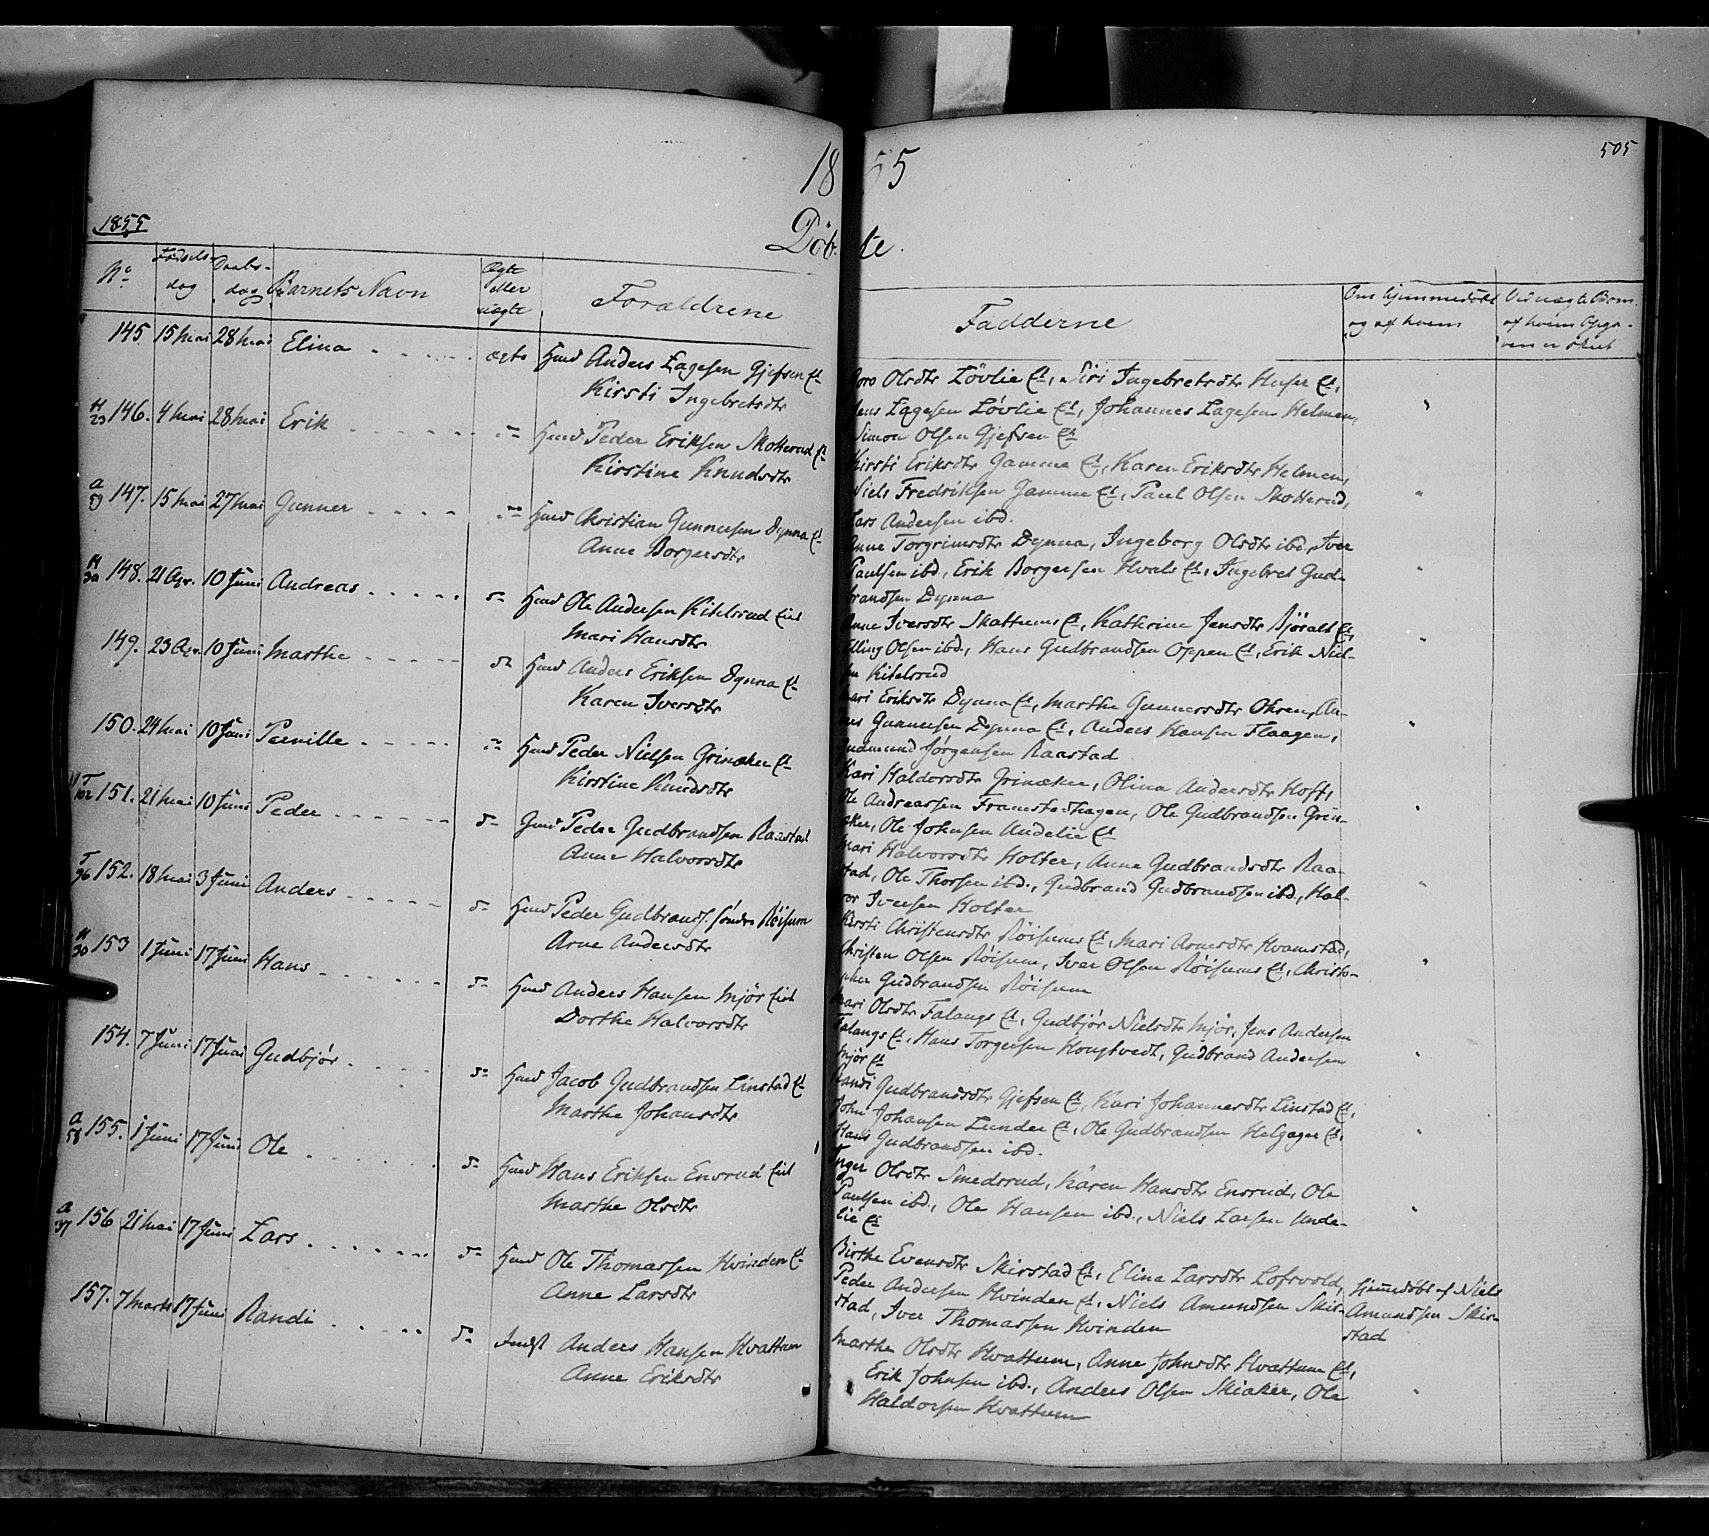 1855
505
1855
Döbte.
No
Fødsels-
dag
Daabs-
dag
Barnets Navn
Ægte
eller
uægte
Forældrene
Fadderne
Om hjemmedøbt
og af hvem
Ved uægte Børn
af hvem Opga-
ven er skeet
145. 15 Mai 28 Mai Elina ægte Huusmd Anders Lagesen Gjefsen Et
Kirsti Ingebretsdtr
Olsdtr Løvlie Et, Siri Ingebretsdtr Hufse Et,
Jens Lagesen Løvlie Et, Johannes Lagesen Helmen,
Simon Olsen Gjefsen Et
146. 4 Mai 28 Mai Erik Huusmd Peder Eriksen Skotterud Et
Kirstine Knudsdtr
Kirsti Eriksdtr Gamme Et, Karen Eriksdtr Helmen,
Niels Fredriksen Gamme Et, Paul Olsen Skotterud,
Lars Andersen ibd.
147. 15 Mai 27 Mai Gunner Huusmd Christian Gunnersen Dynna Et
Anne Borgersdtr
Anne Torgrimsdtr Dynna, Ingeborg Olsdtr ibd, Iver
Paulsen ibd, Erik Borgersen Hvals Et, Ingebret Gud-
brandsen Dynna
148. 21 Apr. 10 Juni Andreas Huusmd Ole Andersen Kittelsrud Eiet
Mari Hansdtr
Anne Iversdtr Skattums Et, Kathrine Jensdtr Bjøralt Et,
Elling Olsen ibd., Hans Gudbrandsen Oppen Et, Erik Niel-
sen Kittelsrud
149. 23 Apr. 10 Juni Marthe Huusmd Anders Eriksen Dynna Et
Karen Iversdtr
Mari Eriksdtr Dynna Et, Marthe Gunnersdtr Ohren, An-
ders Gunnersen Dynna Et, Anders Hansen Flaagen,
Gudmund Jørgensen Raastad
150. 24 Mai 10 Juni Pernille Huusmd Peder Nielsen Grinaker Et
Kirstine Knudsdtr
Kari Haldorsdtr Grinaker, Olina Andersdtr Hoff,
Ole Andreassen Framstadhagen, Ole Gudbrandsen Grin-
aker, Ole Johnsen Andelie Et
151. 21 Mai 10 Juni Peder Gmd Peder Gudbrandsen Raastad
Anne Halvorsdtr
Mari Halvorsdtr Holter, Anne Gudbrandsdtr Raa-
stad, Ole Thorsen ibd., Gudbrand Gudbrandsen ibd, Hal-
vor Iversen Holter
152. 18 Mai 3 Juni Anders Huusmd Peder Gudbrands. søndre Röisum
Arne Andersdtr
Kirsti Christensdtr Röisums Et, Mari Arnesdtr Kvamstad,
Christen Olsen Röisum, Iver Olsen Röisums Et, Christo-
pher Gudbrandsen Röisum
153 1 Juni 17 Juni Hans Huusmd Anders Hansen Mjör Eiet
Dorthe Halvorsdtr
Mari Olsdtr Falangs Et, Gudbjør Nielsdtr Mjör, Jens Andersen
Falangs Et, Hans Torgersen Hougtvedt, Gudbrand Andersen
Mjör Et
154. 7 Juni 17 Juni Gudbjør Huusmd Jacob Gudbrandsen Linstad Et
Marthe Johansdtr
Randi Gudbrandsdtr Gjefsen Et, Kari Johannesdtr Linstad Et,
John Johansen Lunder Et, Ole Gudbrandsen Helgager Et,
Hans Gudbrandsen ibd.
155. 1 Juni 17 Juni Ole Huusmd Hans Eriksen Ensrud Eiet
Marthe Olsdtr
Inger Olsdtr Smedsrud, Karen Hansdtr Ensrud, Ole
Paulsen ibd., Ole Hansen ibd., Niels Larsen Ande-
lie Et
156 21 Mai 17 Juni Lars Huusmd Ole Thomassen Hvinden Et
Anne Larsdtr
Birthe Evensdtr Skirstad Et, Eline Larsdtr Lofsvold,
Peder Andersen Hvinden Et, Niels Amundsen Skir-
stad, Iver Thomassen Hvinden
Hjemmedøbt af Niels
Amundsen Skir-
stad
157. 7 Marts 17 Juni Randi Indst Anders Hansen Hvattum
Anne Eriksdtr
Marthe Olsdtr Hvattum, Anne Johnsdtr Hvattum Et,
Erik Johnsen ibd., Anders Olsen Skiaker, Ole
Haldorsen Hvattum